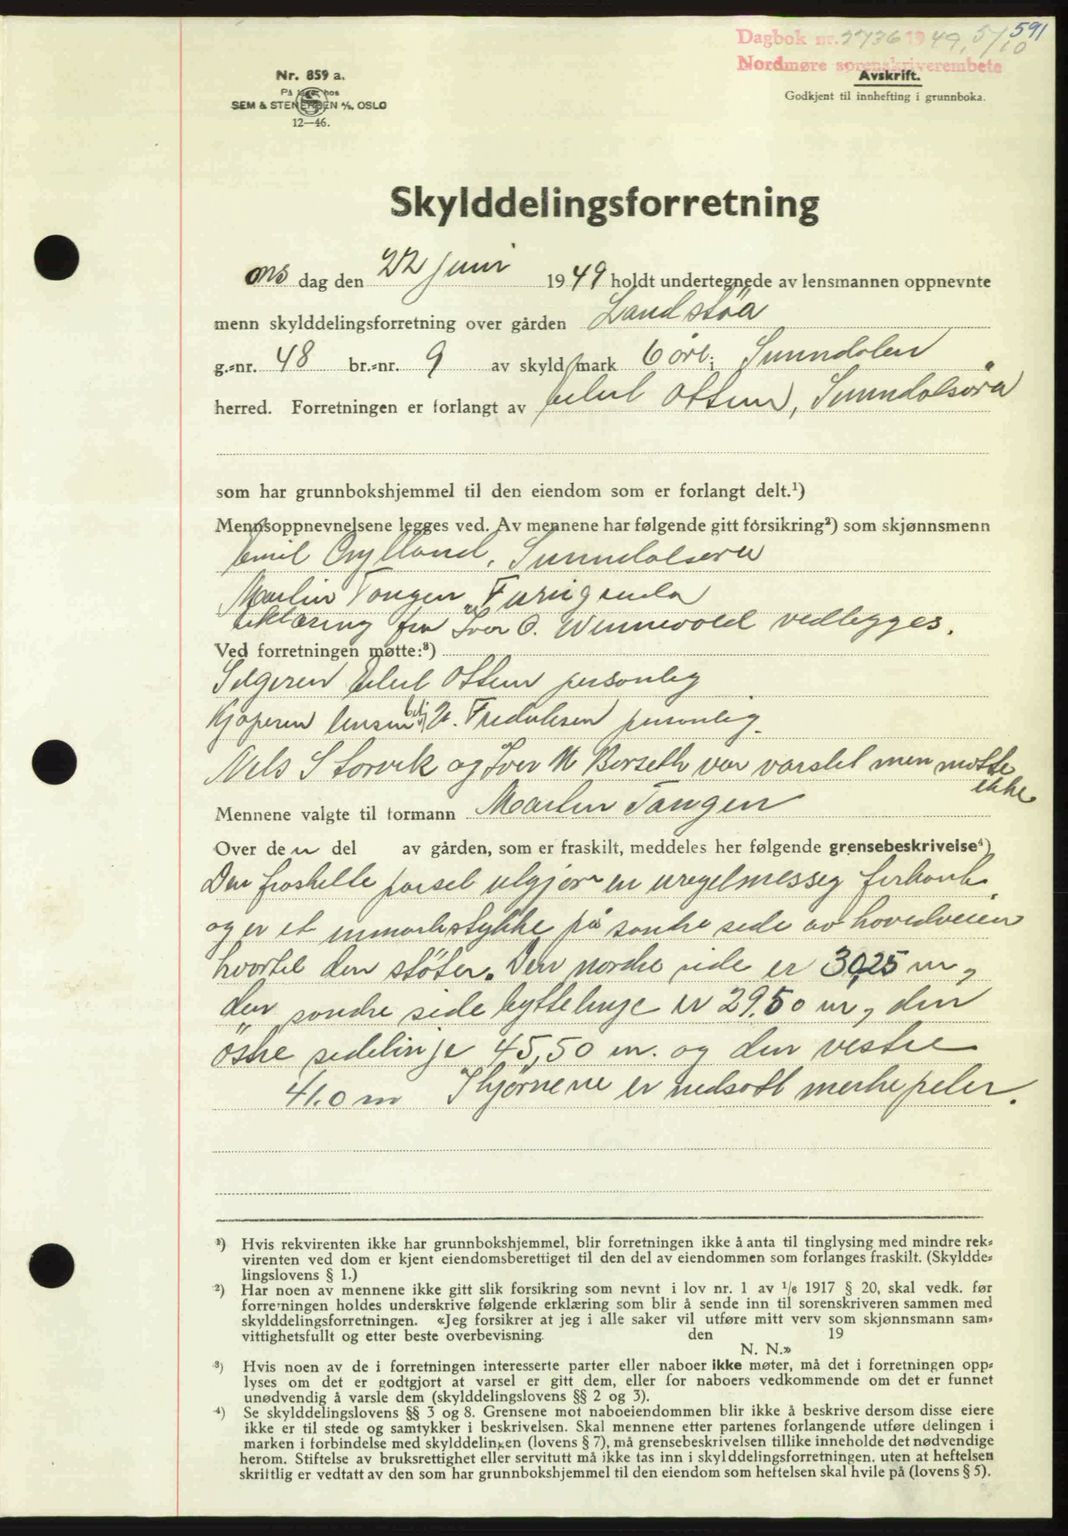 591
Dagbok nr. 2736 1949, 5/10
Nordmøre sorenskriverembete
Nr. 859 a.
På lager hos
SEM & STENERSEN A/S, OSLO
12—46.
Avskrift.
Godkjent til innhefting i grunnboka.
Skylddelingsforretning
ons dag den 22 juni 1949 holdt undertegnede av lensmannen oppnevnte
menn skylddelingsforretning over gården Landstöa
g.-nr. 48 br.-nr. 9 av skyld mark 6 øre i Sunndalen
herred. Forretningen er forlangt av Eilul Ottem, Sunndalsøra
som har grunnbokshjemmel til den eiendom som er forlangt delt.¹)
Mennsoppnevnelsene legges ved. Av mennene har følgende gitt forsikring²) som skjønnsmenn
Emil Gylland, Sunndalsøra
Martin Tangen
erklæring fra Iver O. vedlegges.
Ved forretningen møtte:³)
Selgeren Eilul Ottem personlig
Kjøperen Jensen betj N. Fredriksen personlig.
Nils Storvik og Iver M Berseth var varslet men møtte
ikke
Mennene valgte til formann Martin Tangen
Over den del av gården, som er fraskilt, meddeles her følgende grensebeskrivelse⁴)
Den fraskilte parsel utgjør en uregelmessig firkant
og er et innmarkstykke på søndre side av hovedveien
hvortil den støter. Den nordre side er 30,25 m,
den søndre side byttelinje er 29.50 m, den
östre sidelinje 45,50 m. og den vestre
41.0 m I hjørnene er nedsatt merkepeler.
¹) Hvis rekvirenten ikke har grunnbokshjemmel, blir forretningen ikke å anta til tinglysing med mindre rek-
virenten ved dom er kjent eiendomsberettiget til den del av eiendommen som forlanges fraskilt. (Skyldde-
lingslovens § 1.)
²) Har noen av mennene ikke gitt slik forsikring som nevnt i lov nr. 1 av 1/6 1917 § 20, skal vedk. før
forretningen holdes underskrive følgende erklæring som blir å sende inn til sorenskriveren sammen med
skylddelingsforretningen. «Jeg forsikrer at jeg i alle saker vil utføre mitt verv som skjønnsmann sam-
vittighetsfullt og etter beste overbevisning. den 19
N. N.»
³) Hvis noen av de i forretningen interesserte parter eller naboer ikke møter, må det i forretningen opp-
lyses om det er godtgjort at varsel er gitt dem, eller for naboers vedkommende om det er funnet
unødvendig å varsle dem (skylddelingslovens §§ 2 og 3).
⁴) Se skylddelingslovens §§ 3 og 8. Grensene mot naboeiendommen blir ikke å beskrive dersom disse eiere
ikke er til stede og samtykker i beskrivelsen. Skal mennene etter partenes forlangende utføre delingen i
marken i forbindelse med skylddelingen (lovens § 7), må grensebeskrivelsen tillike inneholde det nødvendige
herom. Stiftelse av bruksrettighet eller servitutt må ikke tas inn i skylddelingsforretningen, uten at heftelsen
skriftlig er vedtatt av den som har grunnbokshjemmel til den eiendom som heftelsen skal hvile på (lovens § 5).